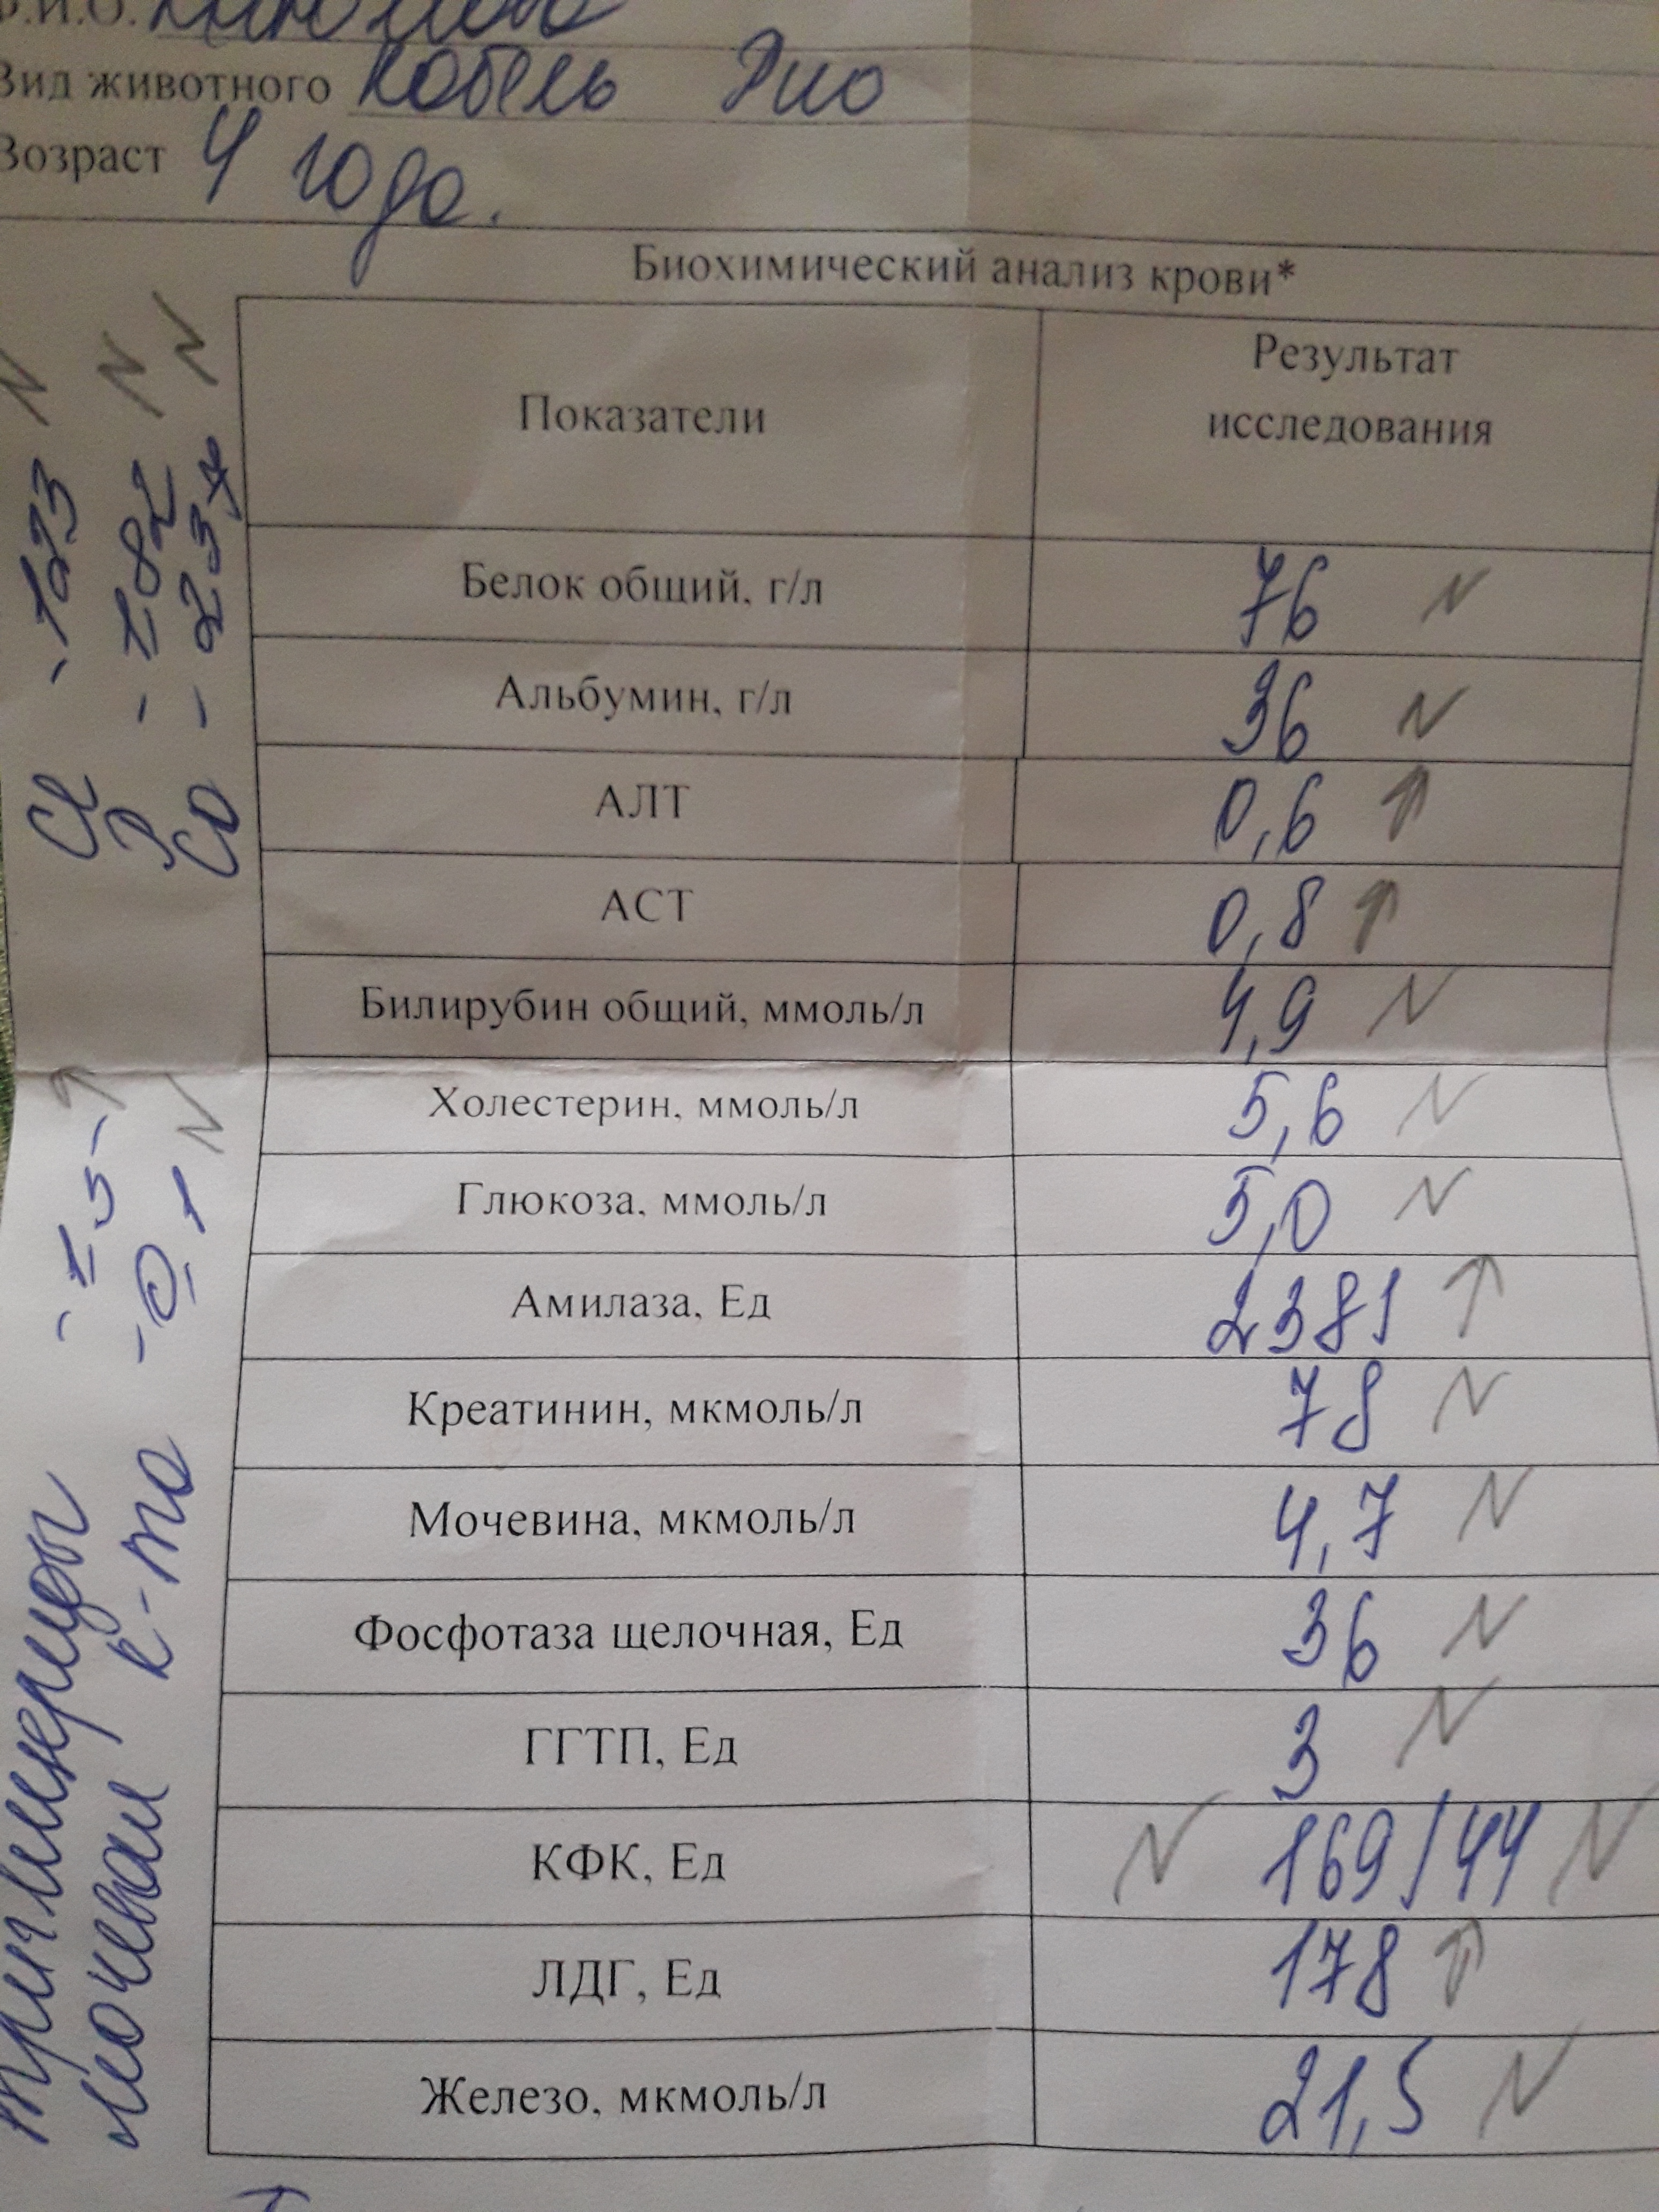 Ф.И.О.
Вид животного кобель Рио
Возраст 4 года.
Биохимический анализ крови*
Показатели Результат исследования
Белок общий, г/л 76 N
Альбумин, г/л 36 N
АЛТ 0,6 ↑
АСТ 0,8 ↑
Билирубин общий, ммоль/л 4,9 N
Холестерин, ммоль/л 5,6 N
Глюкоза, ммоль/л 5,0 N
Амилаза, Ед 2381 ↑
Креатинин, мкмоль/л 78 N
Мочевина, мкмоль/л 4,7 N
Фосфотаза щелочная, Ед 36 N
ГГТП, Ед 3 N
КФК, Ед N 169/44 N
ЛДГ, Ед 178 ↑
Железо, мкмоль/л 21,5 N
Cl - 123 N
P - 1.82 N
Ca - 2.37 N
триглицериды - 1.5 - ↑
мочевая к-та - 0,1 N